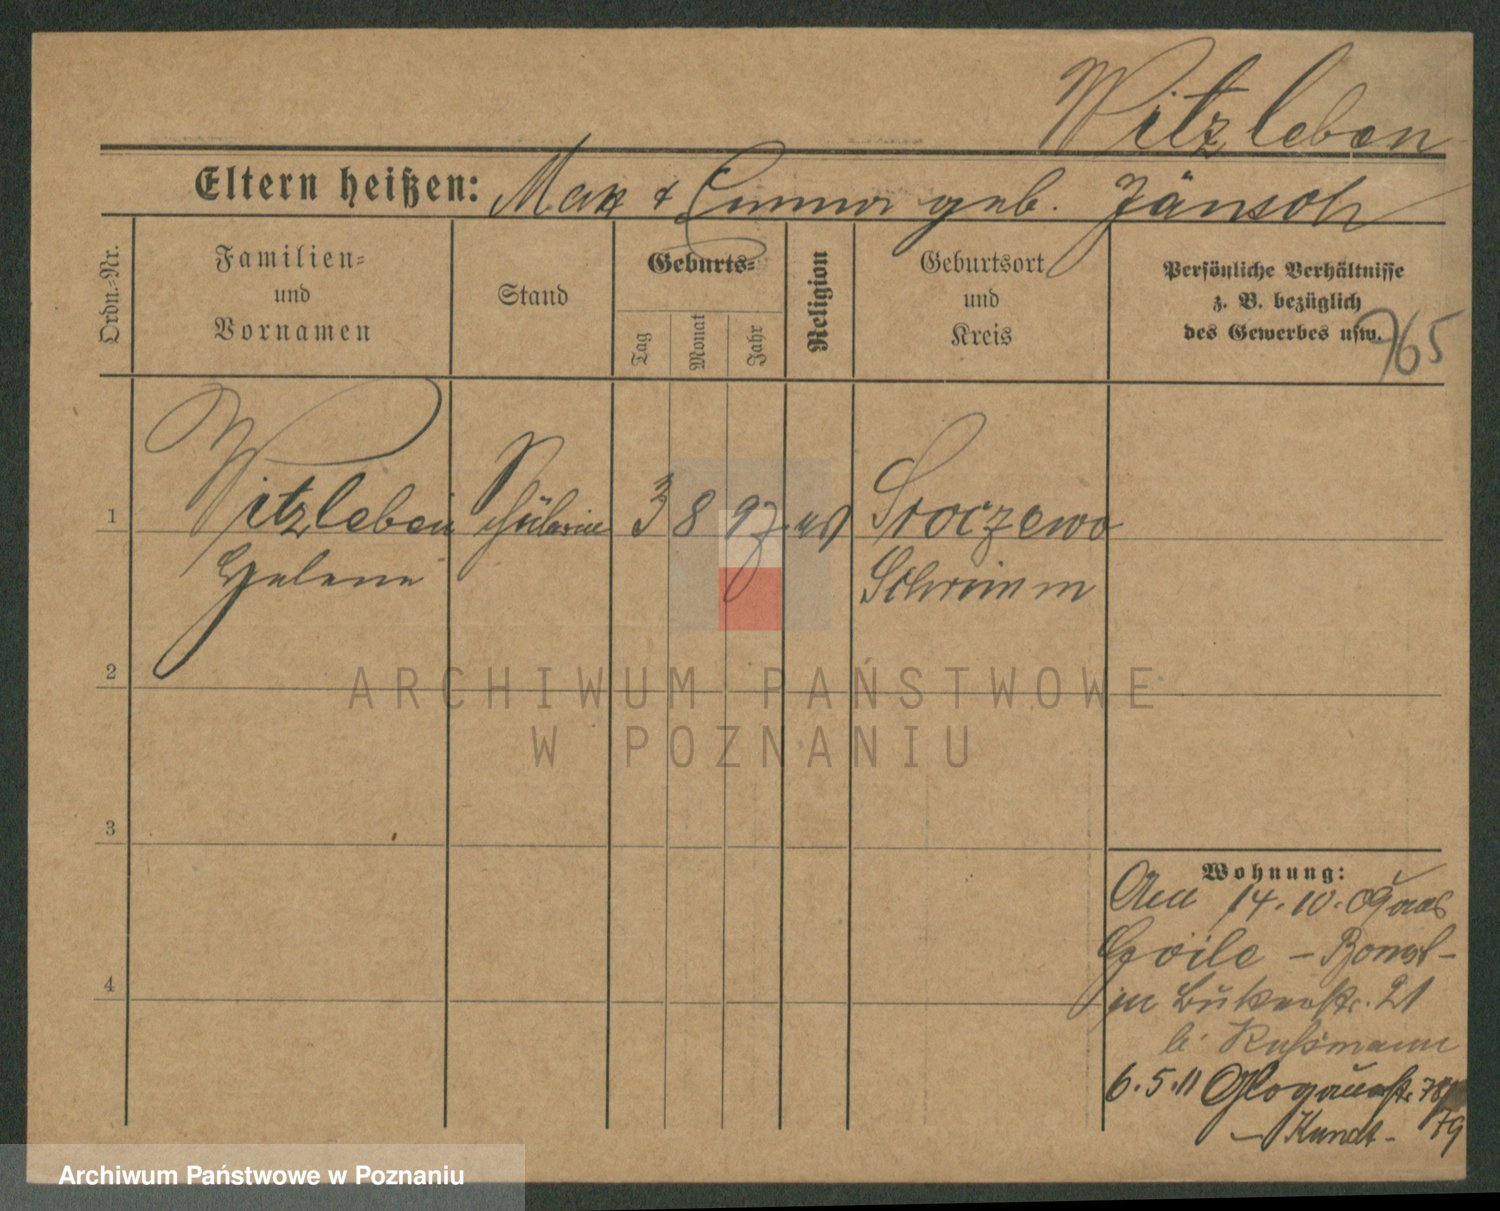 Witzleben
Eltern heißen: Max & Emma geb. Jänsch
Ordn.-Nr.
Familien-
und
Vornamen
Stand
Geburts-
Tag
Monat
Jahr
Religion
Geburtsort
und
Kreis
Persönliche Verhältnisse
z. B. bezüglich
des Gewerbes usw.
765
1
Witzleben Schülerin 3 8 97 Sroczewo
Helene Schrimm
2
ARCHIWUM PAŃSTWOWE
W POZNANIU
3
Wohnung:
14.10.09 aus
4
in Bukerstr. 21
b.
6.5.11 Glogauerstr. 78/
79
- Kundt -
Archiwum Państwowe w Poznaniu